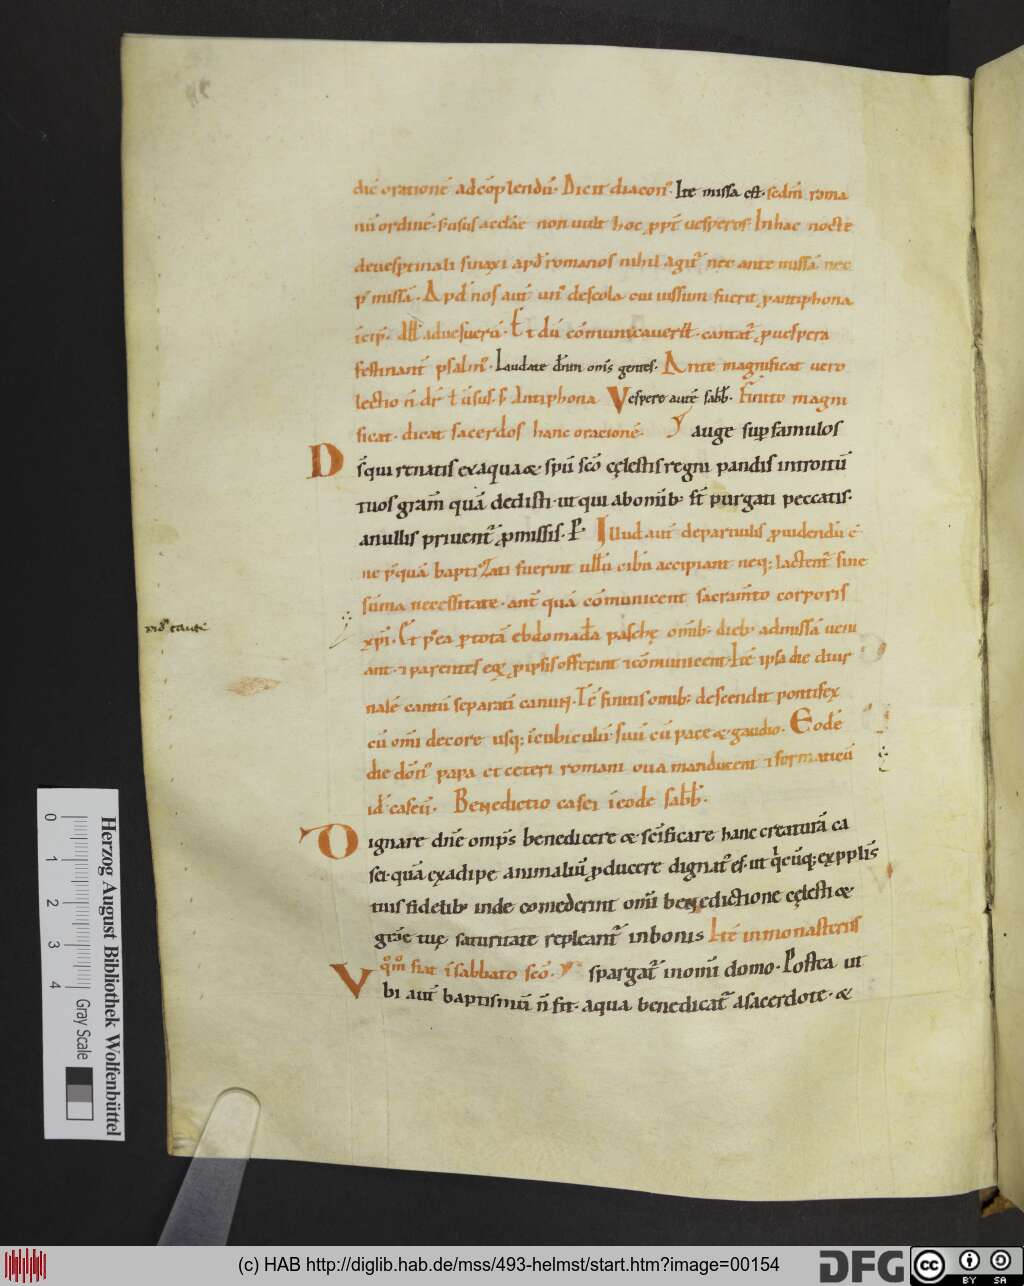 dic̄ orationē ad cōplendū. Dicit diacon⁹. Ite missa est. secdm̄ roma
nū ordinē. non uult hoc ꝓpt̄ uesperos. In hac nocte
de uesptinali sinaxi apđ romanos nihil agit᷑ nec ante missā nec
p᷒ missā. Apđ nos aut̄ un⁹ de scola cui iussum fuerit p antiphona
Et dū cōmunicauer̄t. cantat᷑ ꝓ uespera
festinant̄ psalm⁹. Laudate dn̄m om̄s gentes. Ante magnificat uero
lectio n̄ dr̄ Antiphona Vespere autē sabb̄. Finito magni
ficat. dicat sacerdos hanc orationē. auge sup famulos
Ds̄ qui renatis ex aqua & sp̄u sc̄o cęlestis regni pandis introitū
tuos gram̄ quā dedisti. ut qui ab omīb; st̄ purgati peccatis.
a nullis priuent᷑ ꝓmissis. P̄. Illud aut̄ de paruulis ꝓuidendū ē
ne p̄quā baptizati fuerint ullū cibū accipiant neq; lactent᷑ sine
sūma necessitate. ant̄ quā cōmunicent sacram̄to corporis
xp̄i. Et p᷒ea p totā ebdomadā paschę omīb; dieb; ad missā ueni
ant. ⁊ parentes eoꝝ ꝓ ipsis offerint ⁊ cōmunicent. Itē ipsa die
nalē cantū separati Itē finitis omīb; descendit pontifex
cū om̄i decore usq; ī cubiculū suū cū pace & gaudio. Eodē
die dōn⁹ papa et ceteri romani oua manducent ⁊ formaticū
id ē caseū. Benedictio casei ī eodē sabb̄.
Dignare dn̄e omp̄s benedicere & sc̄ificare hanc creaturā ca
sei. quā ex adipe animaliū ꝓducere dignat⁹ es. ut q̄cūq; ex pplīs
tuis fidelib; inde comederint omī benedictione cęlesti &
gr̄ae tuę saturitate repleant᷑ in bonis Itē in monasteriis
q̄m̄ fiat ī sabbato sc̄o. spargat᷑ in om̄i domo. Postea ut
Vbi aut̄ baptismū n̄ fit. aqua benedicat᷑ a sacerdote. &
Herzog August Bibliothek Wolfenbüttel
0 1 2 3 4
Gray Scale
(c) HAB http://diglib.hab.de/mss/493-helmst/start.htm?image=00154
DFG
cc BY SA